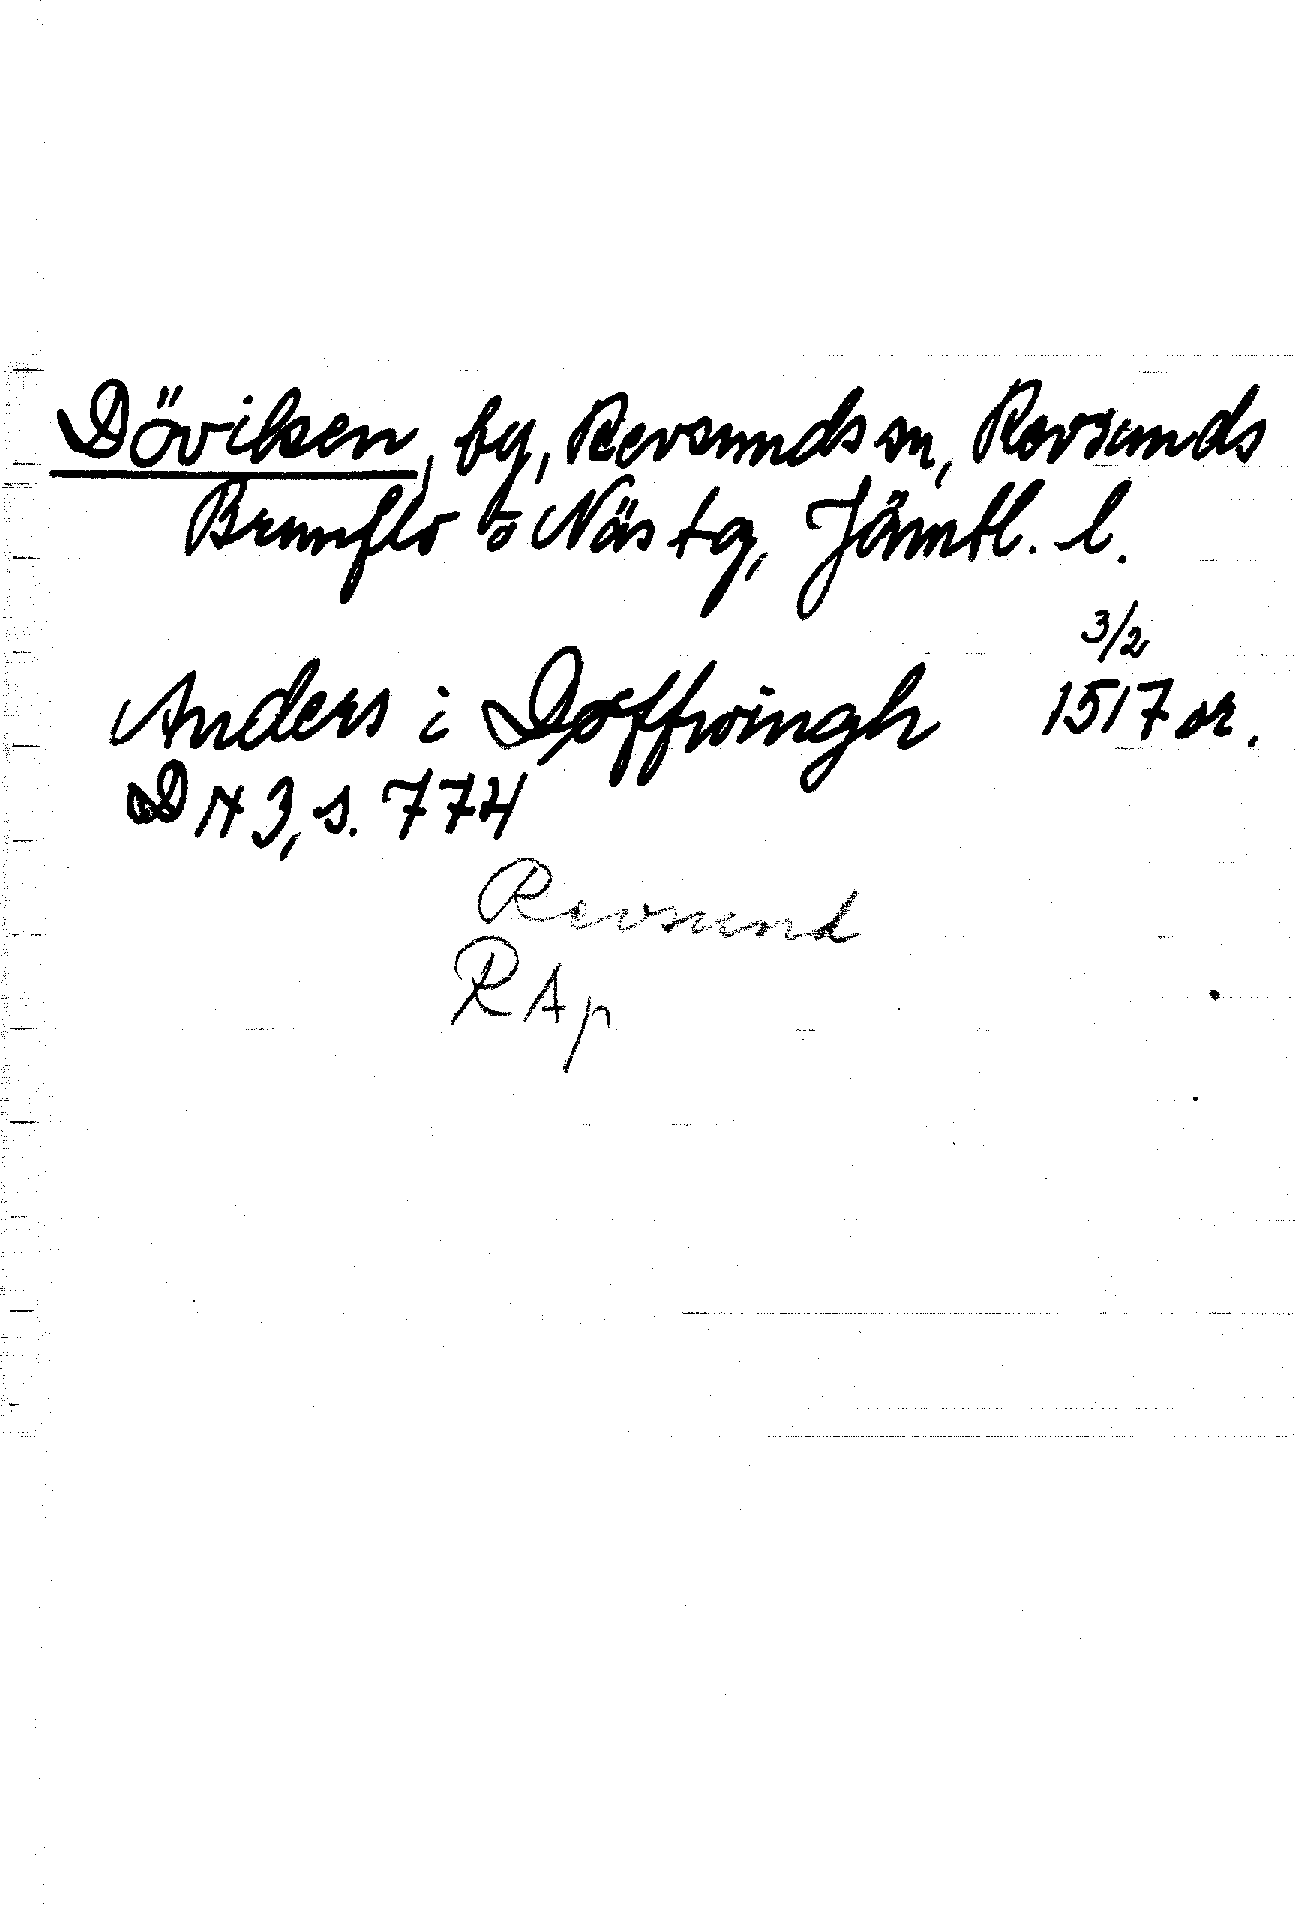 Döviken, by, Revsunds sn, Revsunds
Brunflo o Näs tg, Jämtl. l.
Anders i Døffwingh 3/2 1517 or.
DN 3, s. 774
Revsund
RAp